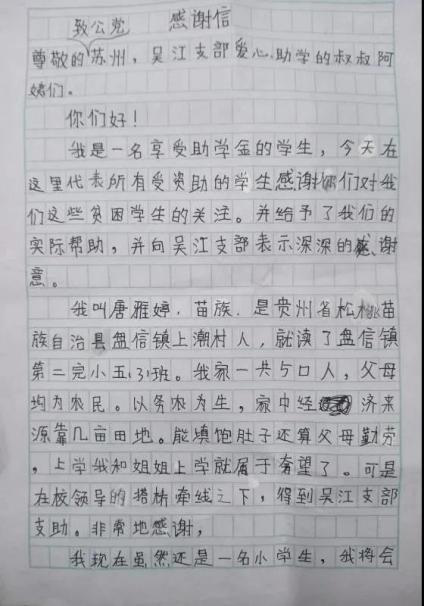 致公党 感谢信
尊敬的苏州，吴江支部爱心助学的叔叔阿
姨们。
你们好！
我是一名享受助学金的学生，今天在
这里代表所有受资助的学生感谢你们对我
们这些贫困学生的关注。并给予了我们的
实际帮助，并向吴江支部表示深深的感谢
意。
我叫唐雅婷，苗族，是贵州省松桃苗
族自治县盘信镇上潮村人，就读了盘信镇
第二完小五(3)班。我家一共5口人，父母
均为农民。以务农为生，家中经 济来
源靠几亩田地。能填饱肚子还算父母勤劳
，上学我和姐姐上学就属于奢望了。可是
在校领导的搭桥牵线之下，得到吴江支部
支助。非常地感谢，
我现在虽然还是一名小学生，我将会